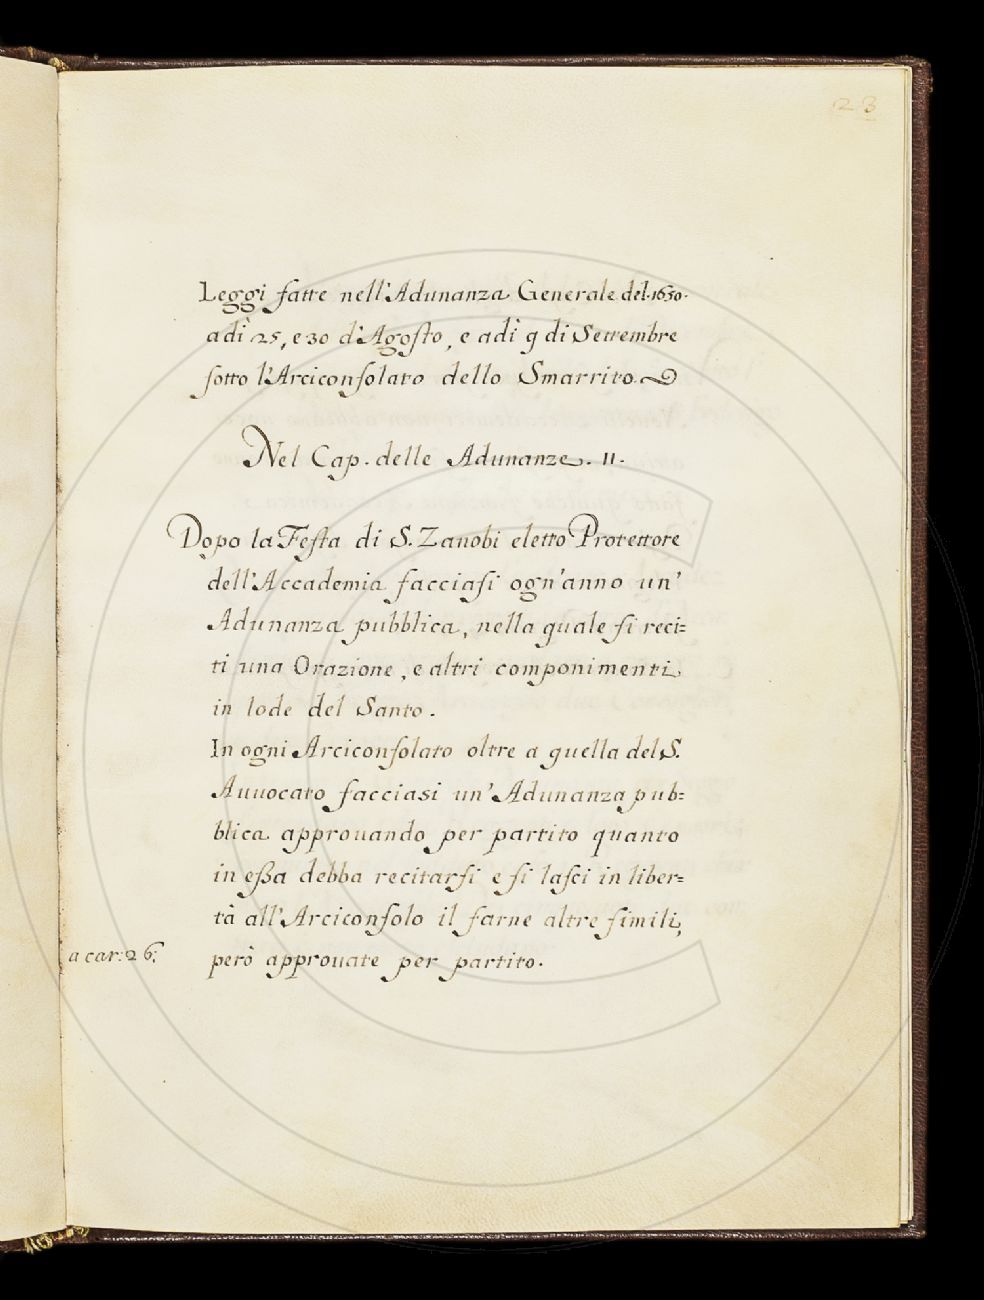 23
Leggi fatte nell'Adunanza Generale del.1650.
adì 25, e 30 d'Agosto, e adì 9 di Settembre
sotto l'Arciconsolato dello Smarrito.
Nel Cap. delle Adunanze. II.
Dopo la Festa di S. Zanobi eletto Protettore
dell'Accademia facciasi ogn'anno un'
Adunanza pubblica, nella quale si reci=
ti una Orazione, e altri componimenti
in lode del Santo.
In ogni Arciconsolato oltre a quella del S.
Auuocato facciasi un'Adunanza pub=
blica approuando per partito quanto
in eßa debba recitarsi e si lasci in liber=
tà all'Arciconsolo il farne altre simili,
a car: 26; però approuate per partito.